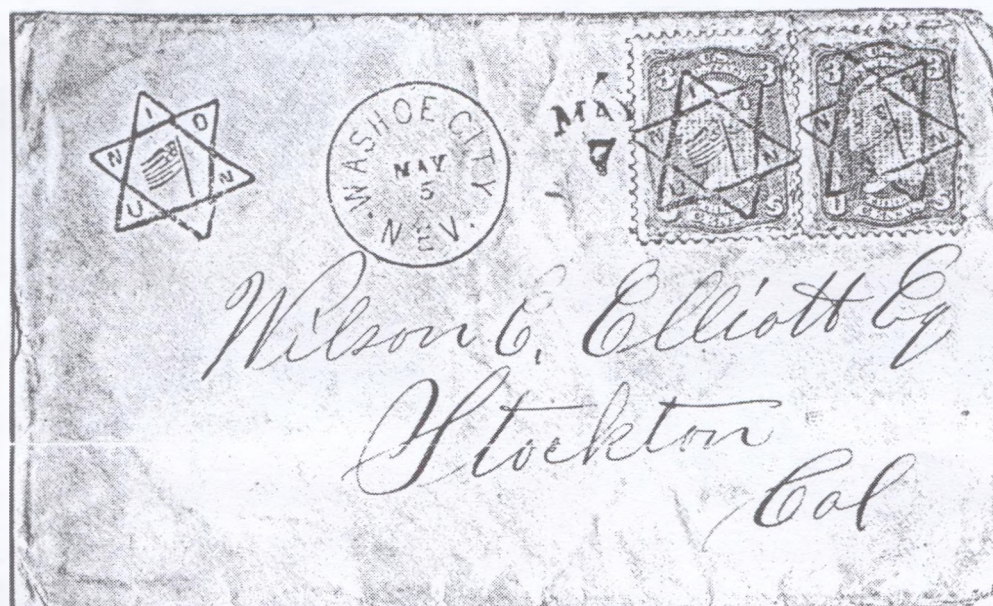 UNION
WASHOE CITY
MAY
5
NEV.
MAY
7
3 3
3 3
UNION
Wilson C. Elliott Esq
Stockton
Cal